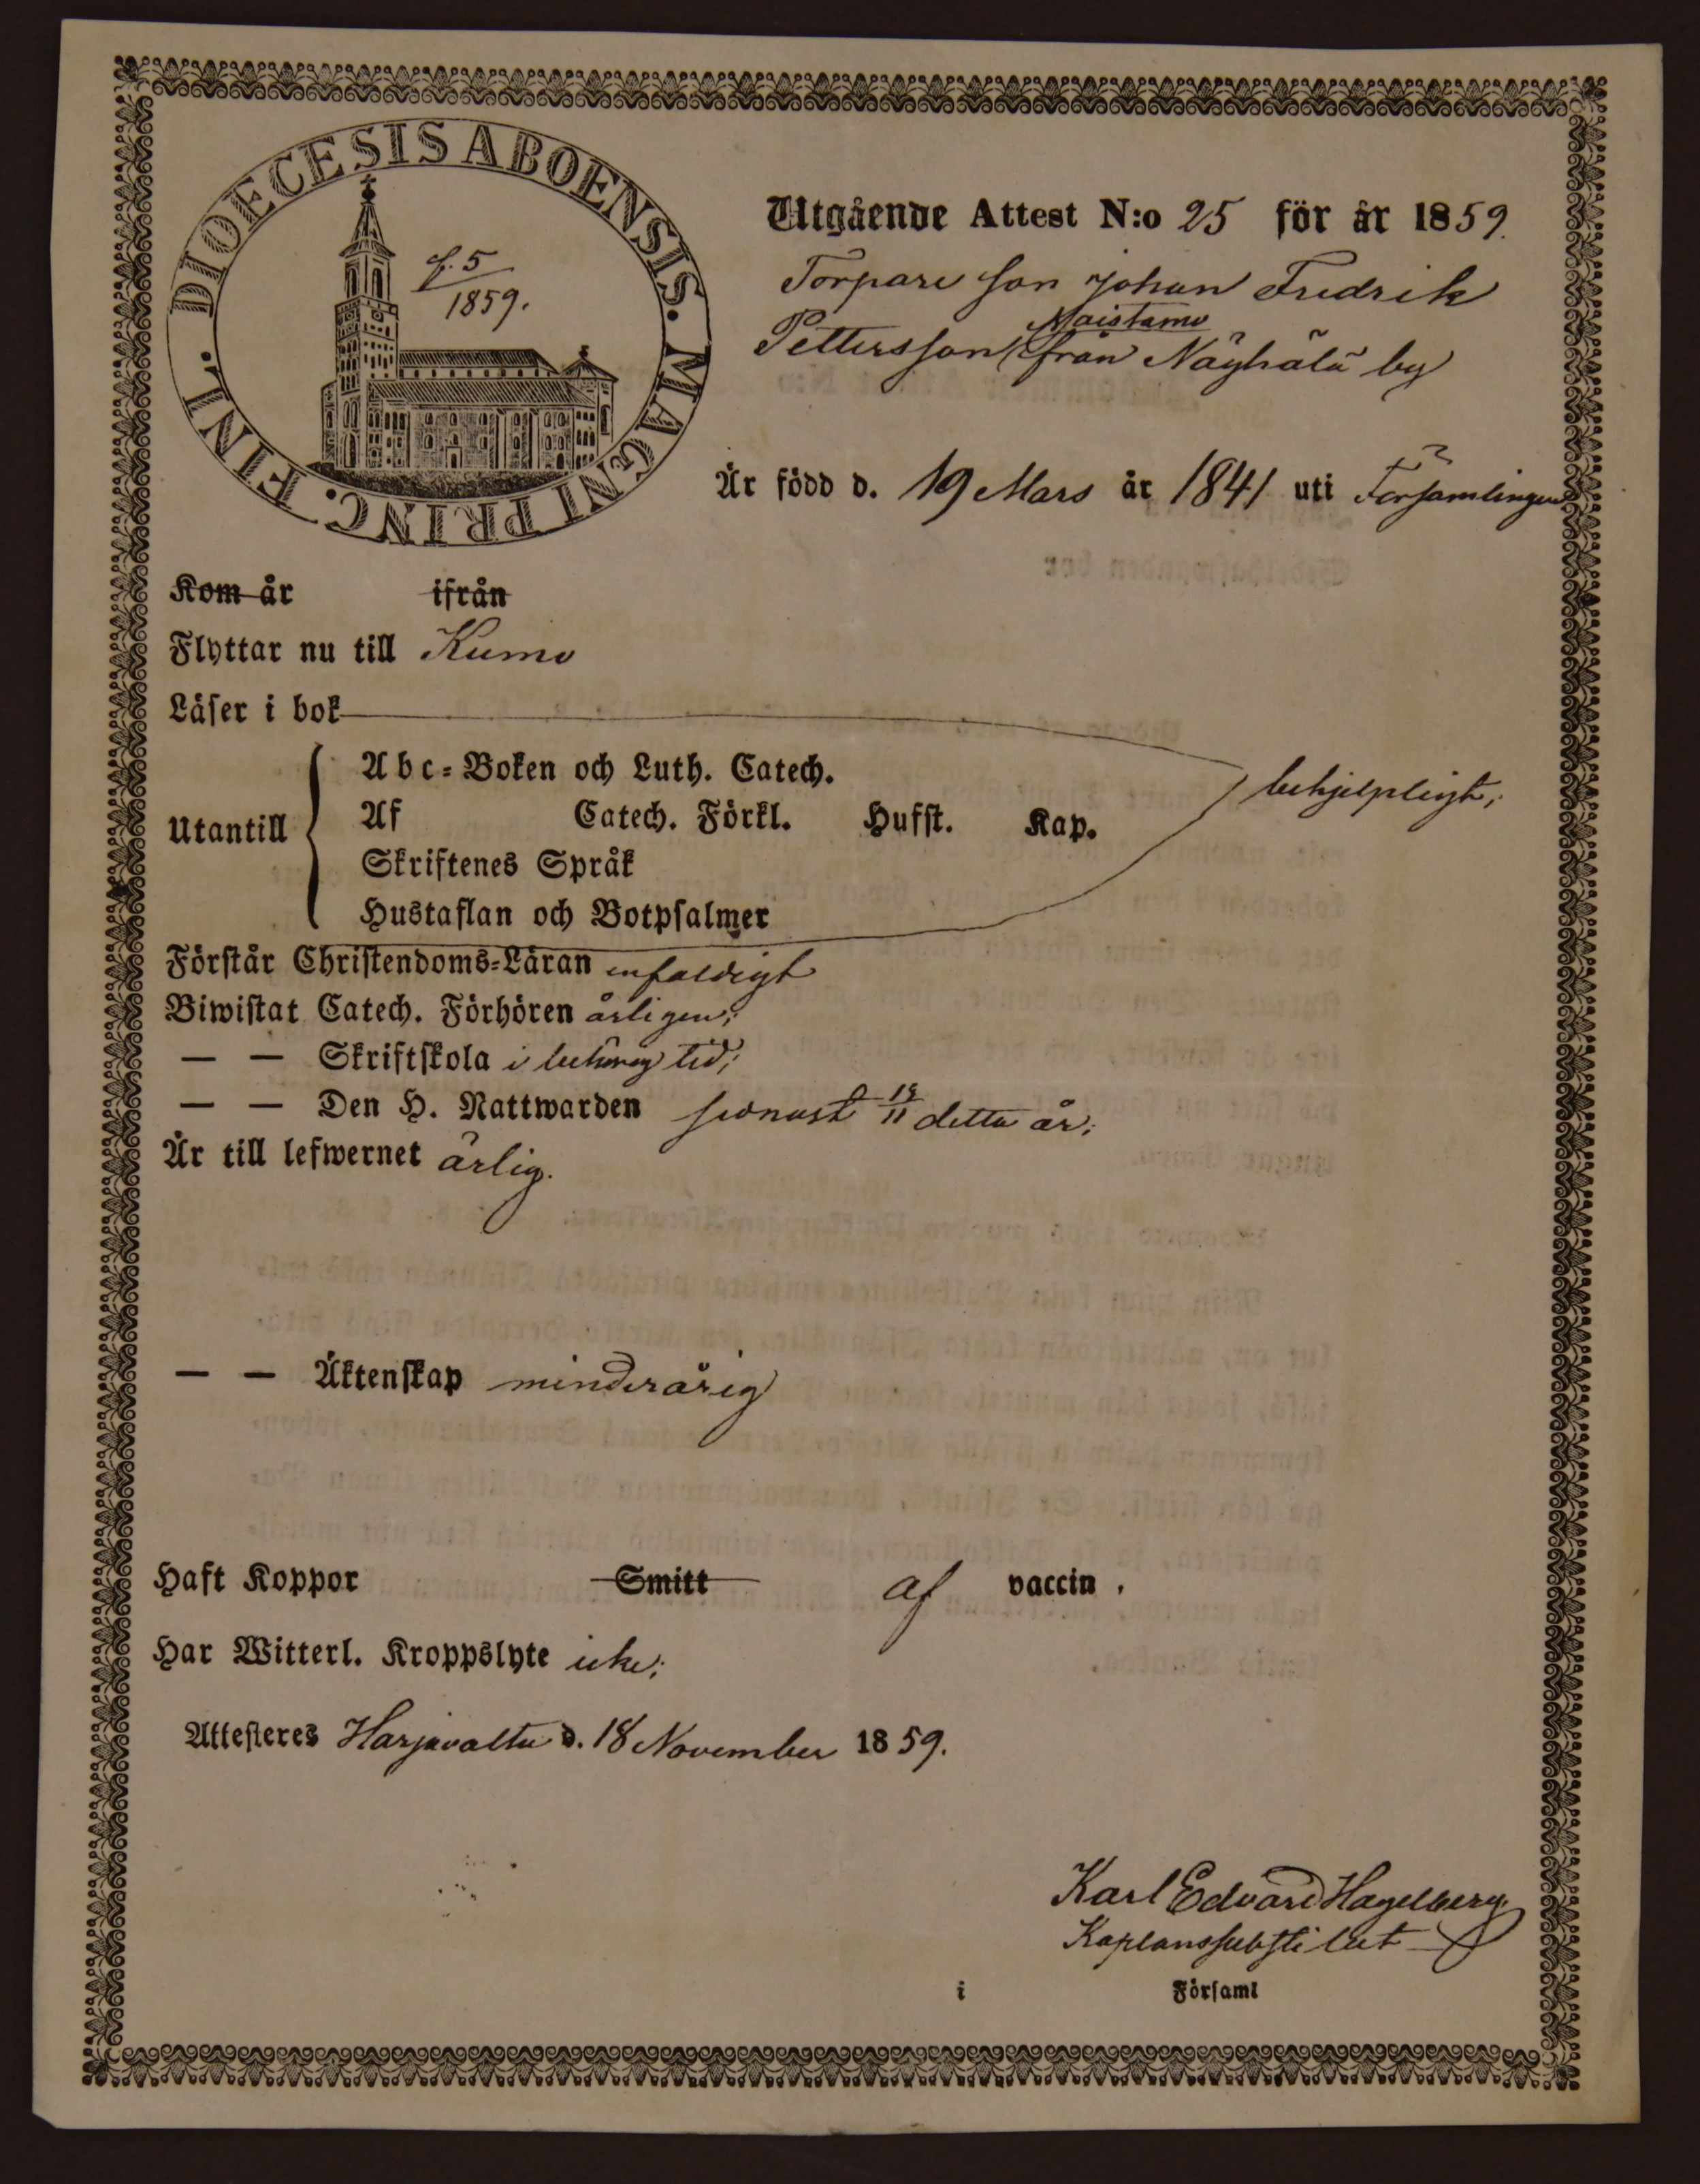 DIOECESIS ABOENSIS. MAGNI PRINC. FINL.
f. 5
1859.
Utgående Attest N:o 25 för år 1859.
Torpare son Johan Fredrik
Maistamo
Pettersson från Näyhälä by
Är född d. 19 Mars år 1841 uti Församlingen
Kom år ifrån
Flyttar nu till Kumo
Läser i bok
Abc-Boken och Luth. Catech.
behjelpligt;
Utantill
Af Catech. Förkl. Hufst. Kap.
Skriftenes Språk
Hustaflan och Botpsalmer
Förstår Christendoms-Läran enfaldigt
Biwistat Catech. Förhören årligen;
— — Skriftskola i behörig tid;
— — Den H. Nattwarden sednast detta år;
Är till lefwernet ärlig.
— — Äktenskap minderårig
Haft Koppor Smitt af vaccin.
Har Witterl. Kroppslyte icke;
Attesteres Harjavalta d. 18 November 1859.
Karl Edvard Hagelberg
Kaplanssubstitut
i Församl